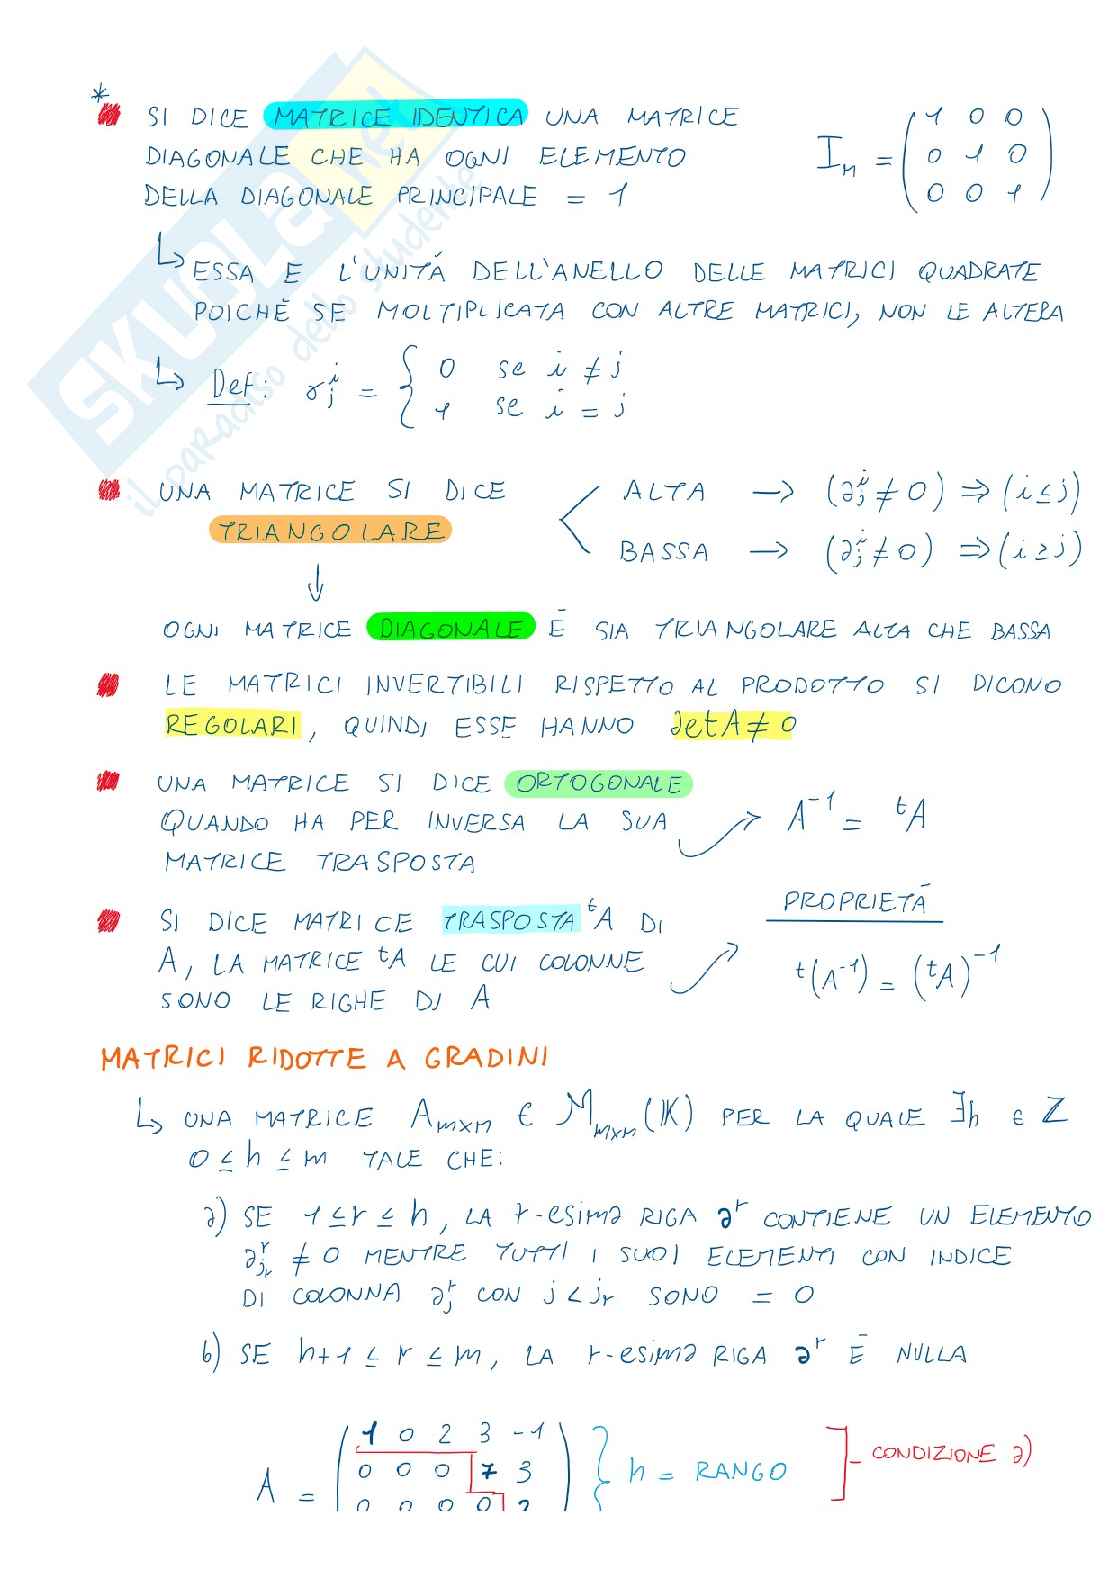 *
SI DICE MATRICE IDENTICA UNA MATRICE
DIAGONALE CHE HA OGNI ELEMENTO
DELLA DIAGONALE PRINCIPALE = 1
I_n = (1 0 0
0 1 0
0 0 1)
↳ ESSA È L'UNITÁ DELL'ANELLO DELLE MATRICI QUADRATE
POICHÈ SE MOLTIPLICATA CON ALTRE MATRICI, NON LE ALTERA
↳ Def: δ^i_j = { 0 se i ≠ j
1 se i = j
UNA MATRICE SI DICE
TRIANGOLARE
ALTA → (a^i_j ≠ 0) ⇒ (i ≤ j)
BASSA → (a^i_j ≠ 0) ⇒ (i ≥ j)
↓
OGNI MATRICE DIAGONALE È SIA TRIANGOLARE ALTA CHE BASSA
LE MATRICI INVERTIBILI RISPETTO AL PRODOTTO SI DICONO
REGOLARI, QUINDI ESSE HANNO detA ≠ 0
UNA MATRICE SI DICE ORTOGONALE
QUANDO HA PER INVERSA LA SUA
MATRICE TRASPOSTA
A⁻¹ = ᵗA
SI DICE MATRICE TRASPOSTA ᵗA DI
A, LA MATRICE ᵗA LE CUI COLONNE
SONO LE RIGHE DI A
PROPRIETÁ
ᵗ(A⁻¹) = (ᵗA)⁻¹
MATRICI RIDOTTE A GRADINI
↳ UNA MATRICE A_mxn ∈ M_mxn(K) PER LA QUALE ∃h ∈ Z
0 ≤ h ≤ m TALE CHE:
a) SE 1 ≤ r ≤ h, LA r-esima RIGA a^r CONTIENE UN ELEMENTO
a^r_jr ≠ 0 MENTRE TUTTI I SUOI ELEMENTI CON INDICE
DI COLONNA a^r_j CON j < j_r SONO = 0
b) SE h+1 ≤ r ≤ m, LA r-esima RIGA a^r È NULLA
A = (1 0 2 3 -1
0 0 0 7 3
0 0 0 0 2
} h = RANGO
] - CONDIZIONE a)
SKUOLA.net
il paradiso dello studente